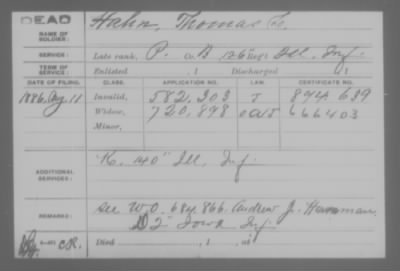 DEAD
NAME OF SOLDIER: Hahn, Thomas
SERVICE: Late rank, P. Co. B 126 Reg't Ill. Inf.
TERM OF SERVICE: Enlisted , 1 Discharged , 1
DATE OF FILING. CLASS. APPLICATION NO. LAW. CERTIFICATE NO.
1886 Aug. 11 Invalid, 582,303 J 894 639
Widow, 720,898 666403
Minor,
ADDITIONAL SERVICES: K. 140" Ill. Inf.
REMARKS: See W.O. 684,866. Andrew J.
D 2" Iowa Inf.
Died , 1 , at